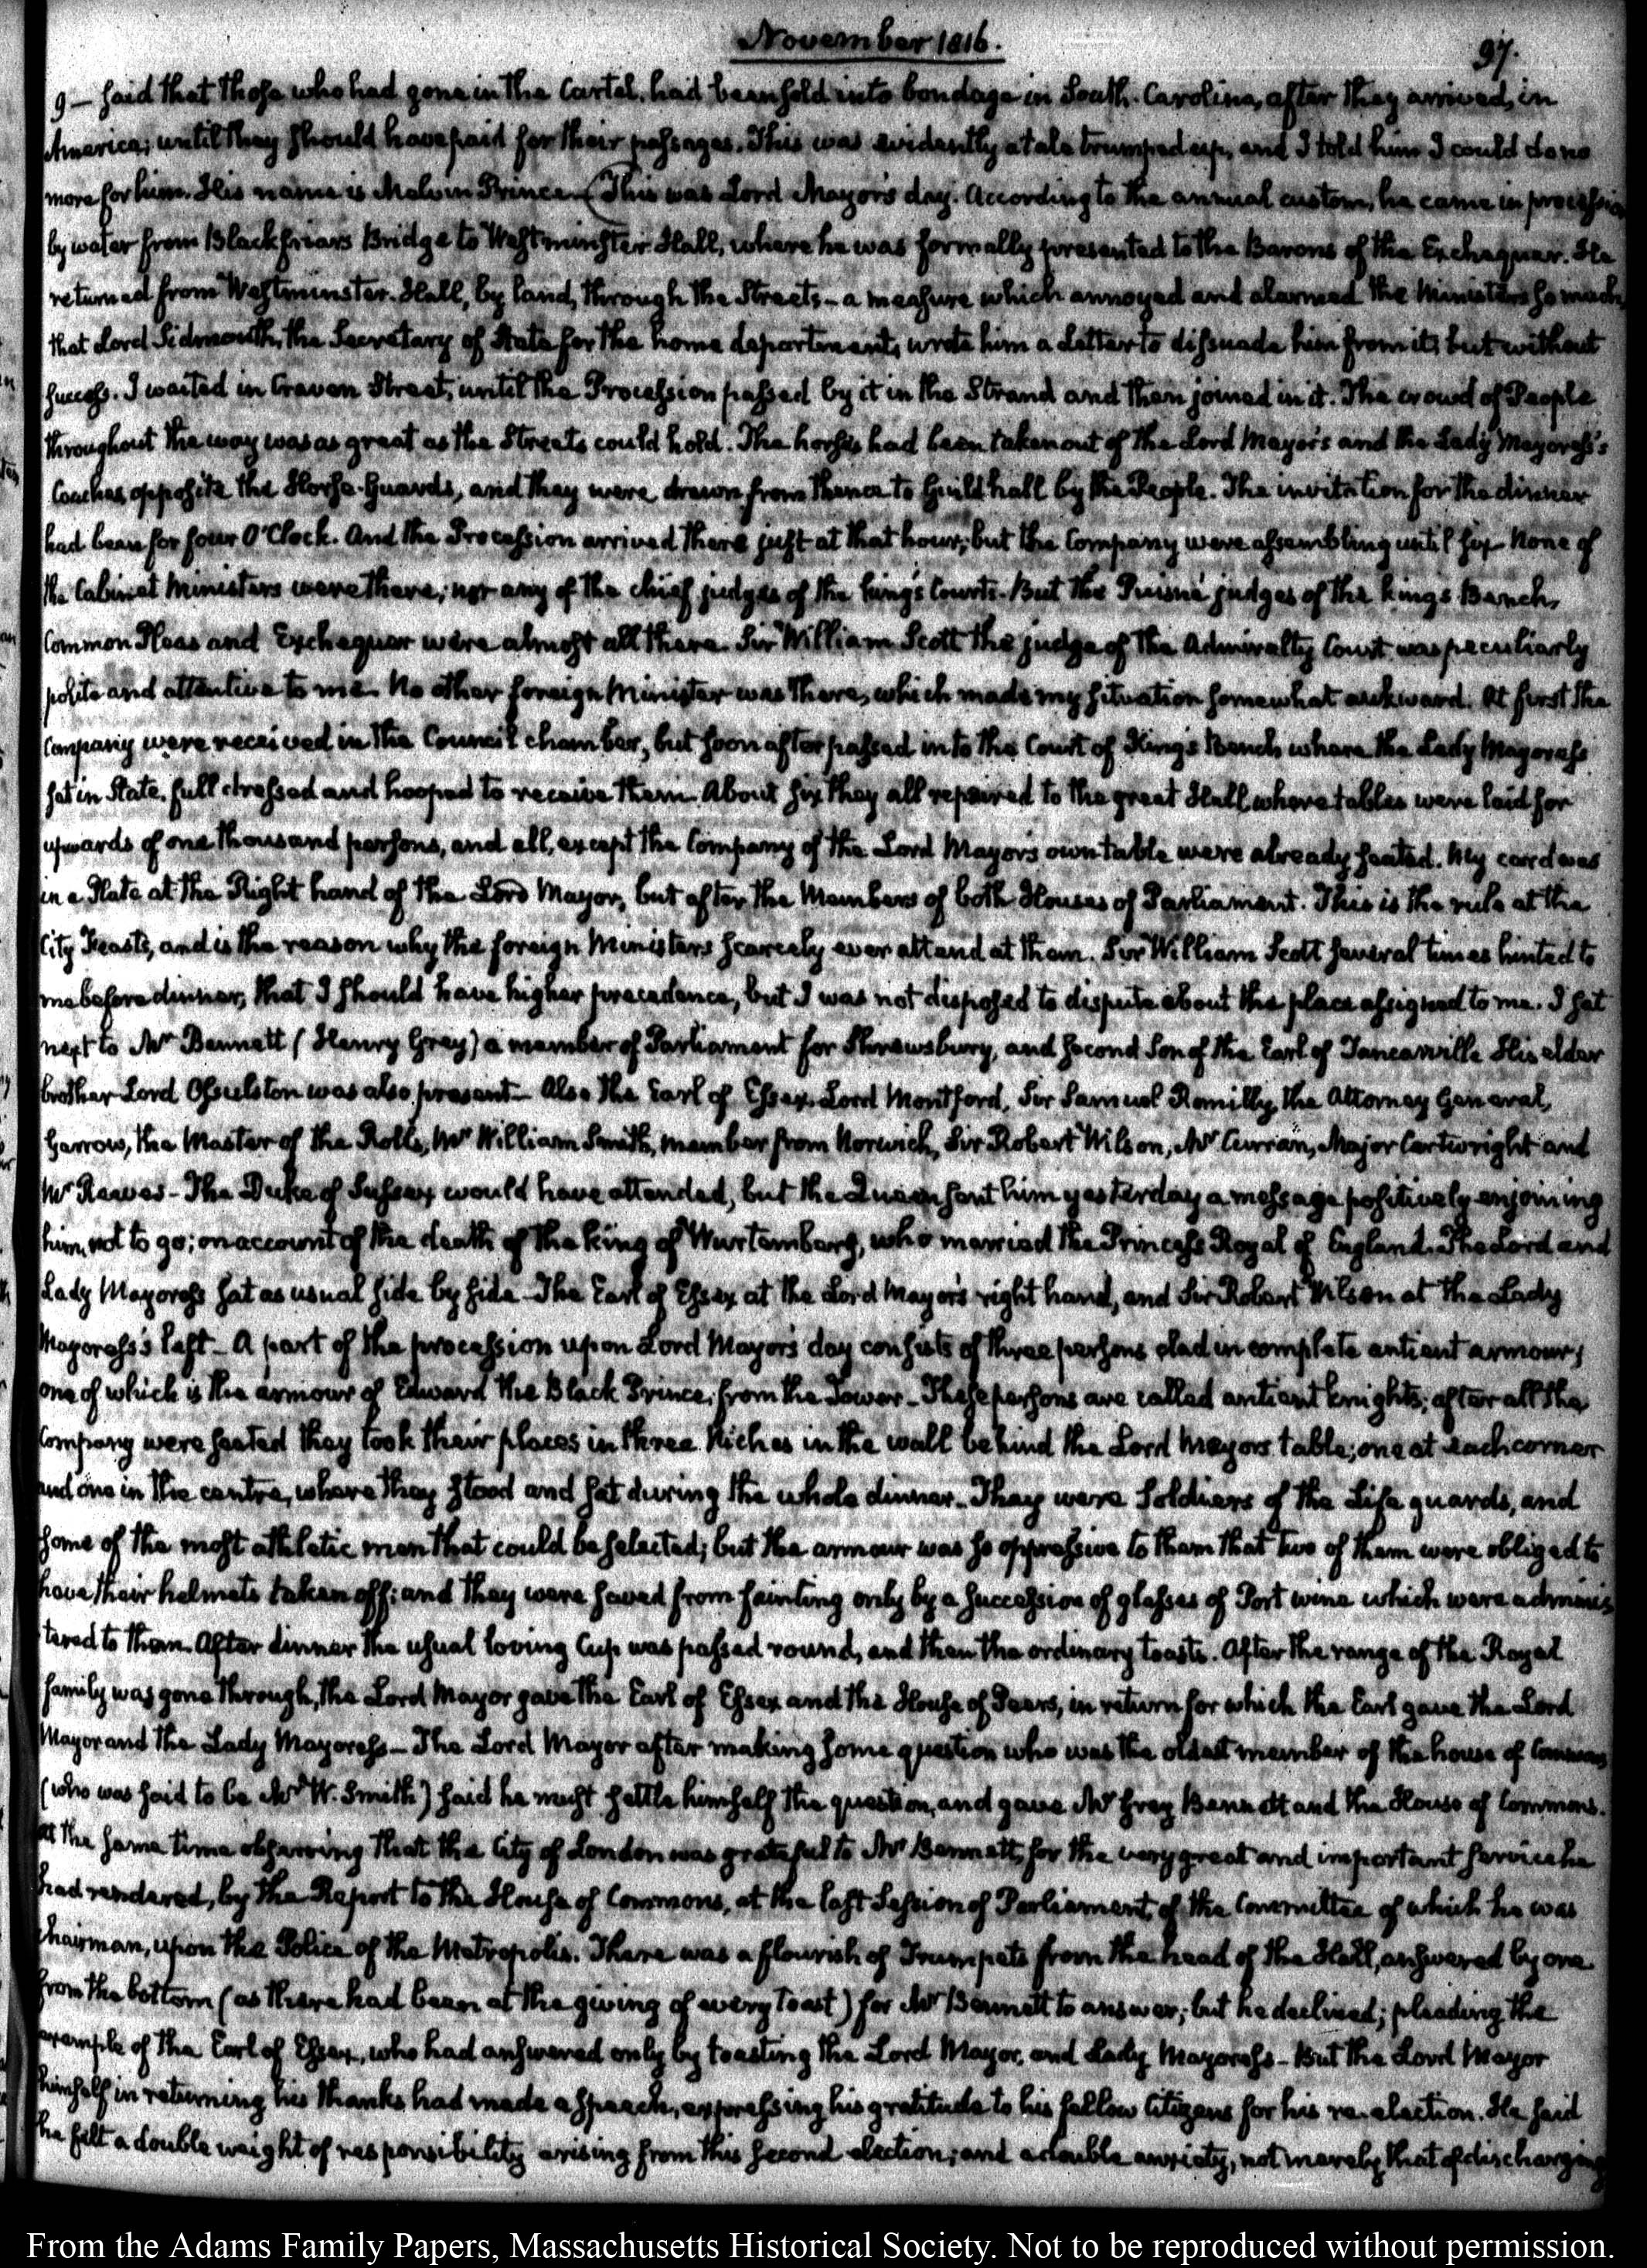 November 1816.
97.
9— said that those who had gone in the Cartel, had been sold into bondage in South-Carolina, after they arrived, in
America; until they should have paid for their passages. This was evidently a tale trumped up, and I told him I could do no
more for him. His name is Melvin Prince— (This was Lord Mayor's day. According to the annual custom, he came in procession
by water from Blackfriars Bridge to Westminster-Hall, where he was formally presented to the Barons of the Exchequer. He
returned from Westminster-Hall, by land, through the Streets—a measure which annoyed and alarmed the Ministers so much,
that Lord Sidmouth, the Secretary of State for the home department, wrote him a Letter to dissuade him from it; but without
success. I waited in Craven Street, until the Procession passed by it in the Strand and then joined in it. The crowd of People
throughout the way was as great as the Streets could hold. The horses had been taken out of the Lord Mayor's and the Lady Mayoress's
Coaches, opposite the Horse-Guards, and they were drawn from thence to Guildhall by the People. The invitation for the dinner
had been for four O'Clock. And the Procession arrived there just at that hour; but the Company were assembling until six. None of
the Cabinet Ministers were there; nor any of the chief judges of the king's Courts. But the Puisné judges of the kings-Bench,
Common Pleas and Exchequer were almost all there. Sir William Scott the judge of the Admiralty Court was peculiarly
polite and attentive to me. No other foreign Minister was there, which made my situation somewhat awkward. At first the
Company were received in the Council chamber, but soon after passed into the Court of King's Bench where the Lady Mayoress
sat in State, full dressed and hooped to receive them. About six they all repaired to the great Hall where tables were laid for
upwards of one thousand persons, and all, except the Company of the Lord Mayor's own table were already seated. My card was
in a Plate at the Right hand of the Lord Mayor, but after the Members of both Houses of Parliament. This is the rule at the
City Feasts, and is the reason why the foreign Ministers scarcely ever attend at them. Sir William Scott several times hinted to
me before dinner, that I should have higher precedence, but I was not disposed to dispute about the place assigned to me. I sat
next to Mr Bennett (Henry Grey) a member of Parliament for Shrewsbury, and second Son of the Earl of Tancarville His elder
brother Lord Ossulston was also present— Also the Earl of Essex, Lord Montford, Sir Samuel Romilly, the Attorney General,
Garrow, the Master of the Rolls, Mr William Smith, member from Norwich, Sir Robert Wilson, Mr Curran, Major Cartwright and
Mr Reeves—The Duke of Sussex would have attended, but the Queen sent him yesterday a message positively enjoining
him, not to go; on account of the death of the king of Wurtemberg, who married the Princess Royal of England. The Lord and
Lady Mayoress sat as usual side by side—The Earl of Essex at the Lord Mayor's right hand, and Sir Robert Wilson at the Lady
Mayoress's left— A part of the procession upon Lord Mayor's day consists of three persons clad in complete antient armour;
one of which is the armour of Edward the Black Prince, from the Tower— These persons are called antient knights; after all the
Company were seated they took their places in three Niches in the wall behind the Lord Mayors table; one at each corner
and one in the centre, where they stood and sat during the whole dinner— They were Soldiers of the Life guards, and
some of the most athletic men that could be selected; but the armour was so oppressive to them that two of them were obliged to
have their helmets taken off; and they were saved from fainting only by a succession of glasses of Port wine which were adminis
tered to them. After dinner the usual loving Cup was passed round, and then the ordinary toasts. After the range of the Royal
family was gone through, the Lord Mayor gave the Earl of Essex and the House of Peers, in return for which the Earl gave the Lord
Mayor and the Lady Mayoress— The Lord Mayor after making some question who was the oldest member of the house of Commons,
(who was said to be Mr W. Smith) said he must settle himself the question, and gave Mr Grey Bennett and the House of Commons.
at the same time observing that the City of London was grateful to Mr Bennett, for the very great and important service he
had rendered, by the Report to the House of Commons, at the last Session of Parliament, of the Committee of which he was
Chairman, upon the Police of the Metropolis. There was a flourish of Trumpets from the head of the Hall, answered by one
from the bottom (as there had been at the giving of every Toast) for Mr Bennett to answer; but he declined; pleading the
example of the Earl of Essex, who had answered only by toasting the Lord Mayor, and Lady Mayoress— But the Lord Mayor
himself in returning his thanks had made a speech, expressing his gratitude to his fellow Citizens for his re-election. He said
he felt a double weight of responsibility arising from this second election; and a double anxiety, not merely that of discharging
From the Adams Family Papers, Massachusetts Historical Society. Not to be reproduced without permission.